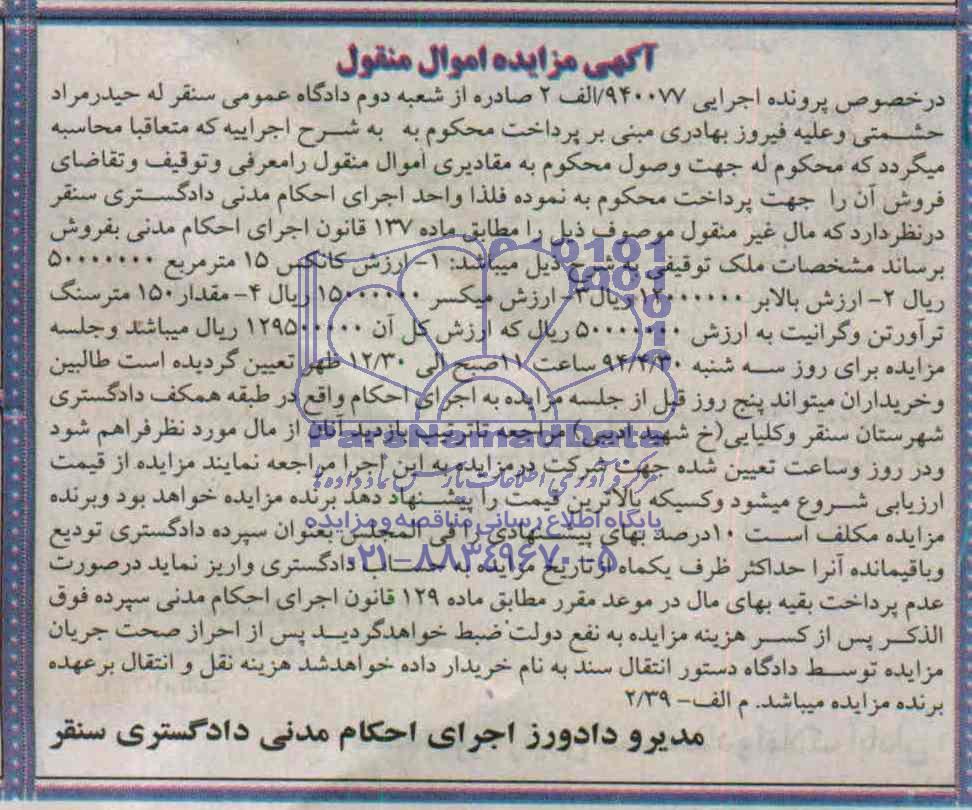 آگهی مزایده اموال منقول
درخصوص پرونده اجرایی ۹۴۰۰۷۷/الف ۲ صادره از شعبه دوم دادگاه عمومی سنقر له حیدرمراد
حشمتی وعلیه فیروز بهادری مبنی بر پرداخت محکوم به به شرح اجراییه که متعاقبا محاسبه
میگردد که محکوم له جهت وصول محکوم به مقادیری اموال منقول رامعرفی وتوقیف وتقاضای
فروش آن را جهت پرداخت محکوم به نموده فلذا واحد اجرای احکام مدنی دادگستری سنقر
درنظردارد که مال غیر منقول موصوف ذیل را مطابق ماده ۱۳۷ قانون اجرای احکام مدنی بفروش
برساند مشخصات ملک توقیفی به شرح ذیل میباشد: ۱- ارزش کانکس ۱۵ مترمربع ۵۰۰۰۰۰۰۰
ریال ۲- ارزش بالابر ۱۲۰۰۰۰۰۰ ریال ۳- ارزش میکسر ۱۵۰۰۰۰۰۰ ریال ۴- مقدار ۱۵۰ مترسنگ
ترآورتن وگرانیت به ارزش ۵۰۰۰۰۰۰۰ ریال که ارزش کل آن ۱۲۹۵۰۰۰۰۰ ریال میباشد وجلسه
مزایده برای روز سه شنبه ۹۴/۴/۳۰ ساعت ۱۱صبح الی ۱۲/۳۰ ظهر تعیین گردیده است طالبین
وخریداران میتواند پنج روز قبل از جلسه مزایده به اجرای احکام واقع در طبقه همکف دادگستری
شهرستان سنقر وکلیایی(خ شهید ادیبی) مراجعه تاترتیب بازدید آنان از مال مورد نظرفراهم شود
ودر روز وساعت تعیین شده جهت شرکت درمزایده به این اجرا مراجعه نمایند مزایده از قیمت
ارزیابی شروع میشود وکسیکه بالاترین قیمت را پیشنهاد دهد برنده مزایده خواهد بود وبرنده
مزایده مکلف است ۱۰درصد بهای پیشنهادی را فی المجلس بعنوان سپرده دادگستری تودیع
وباقیمانده آنرا حداکثر ظرف یکماه ازتاریخ مزایده به حساب دادگستری واریز نماید درصورت
عدم پرداخت بقیه بهای مال در موعد مقرر مطابق ماده ۱۲۹ قانون اجرای احکام مدنی سپرده فوق
الذکر پس از کسر هزینه مزایده به نفع دولت ضبط خواهدگردید پس از احراز صحت جریان
مزایده توسط دادگاه دستور انتقال سند به نام خریدار داده خواهدشد هزینه نقل و انتقال برعهده
برنده مزایده میباشد. م الف- ۲/۳۹
مدیرو دادورز اجرای احکام مدنی دادگستری سنقر
ParsNamadData
پایگاه اطلاع رسانی مناقصه و مزایده
۰۲۱-۸۸۳۴۹۶۷۰-۵